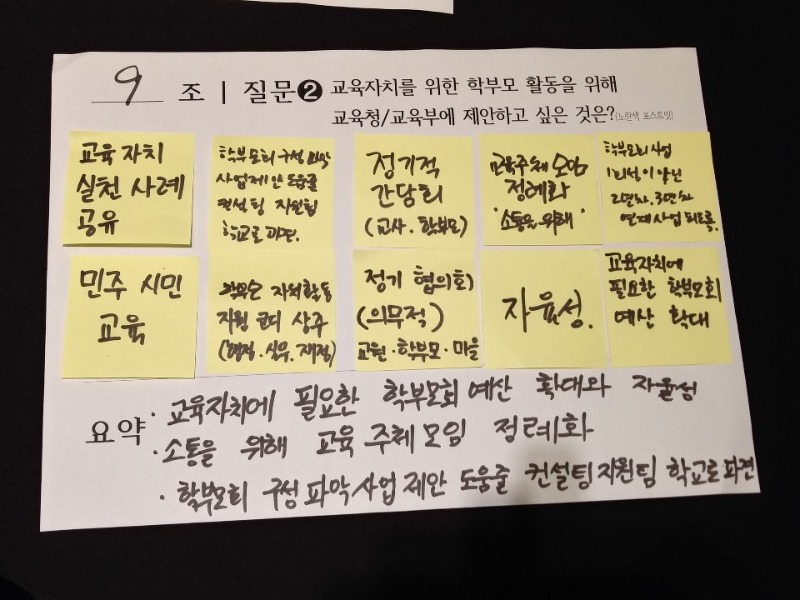 9 조 | 질문❷ 교육자치를 위한 학부모 활동을 위해
교육청/교육부에 제안하고 싶은 것은?(노란색 포스트잇)
교육자치
실천 사례
공유
학부모회 구성 파악
사업제안 도움줄
컨설팅 지원팀
학교로 파견.
정기적
간담회
(교사·학부모)
교육주체 모임
정례화
"소통을 위해"
학부모회 사업
1회성이 아닌
2년차, 3년차
연계사업 되도록.
민주 시민
교육
자치활동
지원 코디 상주
(행정·실무·재정)
정기 협의회
(의무적)
교원·학부모·마을
자율성.
교육자치에
필요한 학부모회
예산 확대
요약
· 교육자치에 필요한 학부모회 예산 확대와 자율성
· 소통을 위해 교육 주체 모임 정례화
· 학부모회 구성 파악 사업 제안 도움줄 컨설팅지원팀 학교로 파견